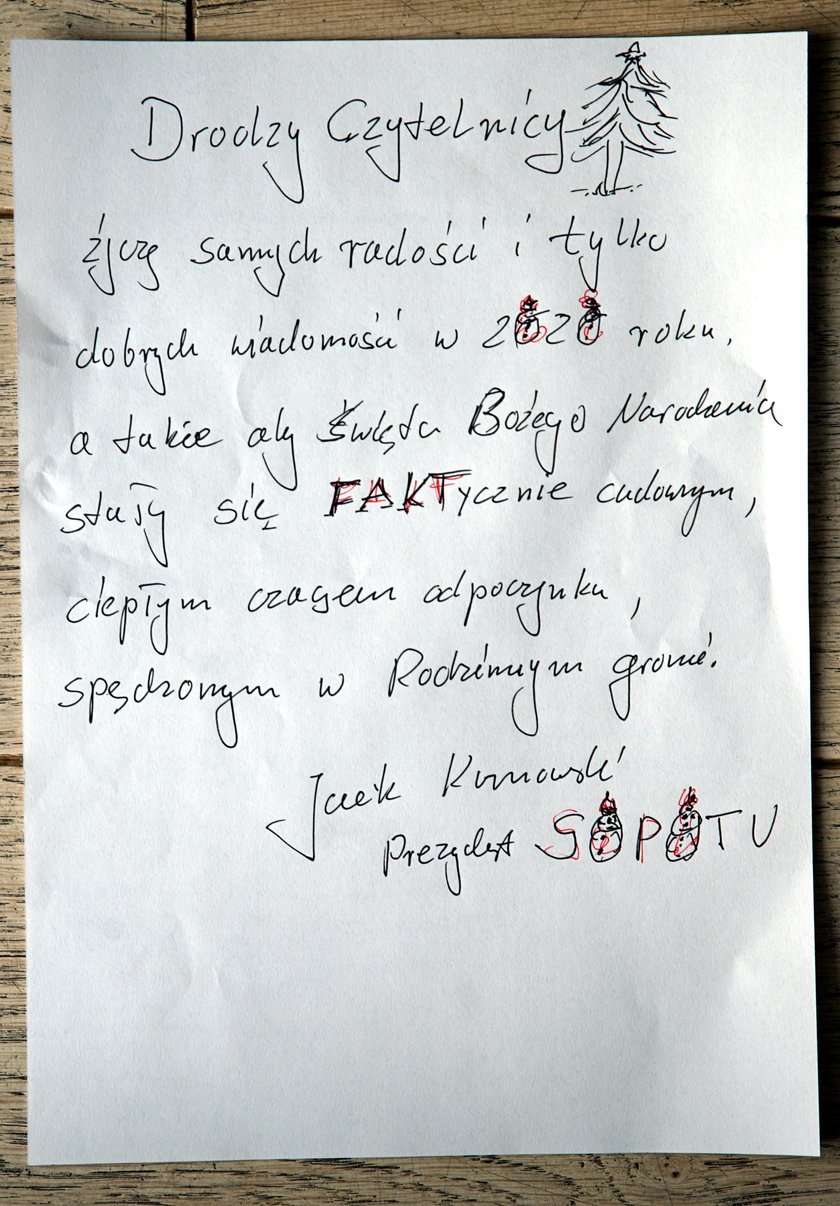 Drodzy Czytelnicy
życzę samych radości i tylko
dobrych wiadomości w 2020 roku,
a także aby Święta Bożego Narodzenia
stały się FAKTycznie cudownym,
ciepłym czasem odpoczynku,
spędzonym w Rodzinnym gronie.
Jacek Karnowski
Prezydent SOPOTU